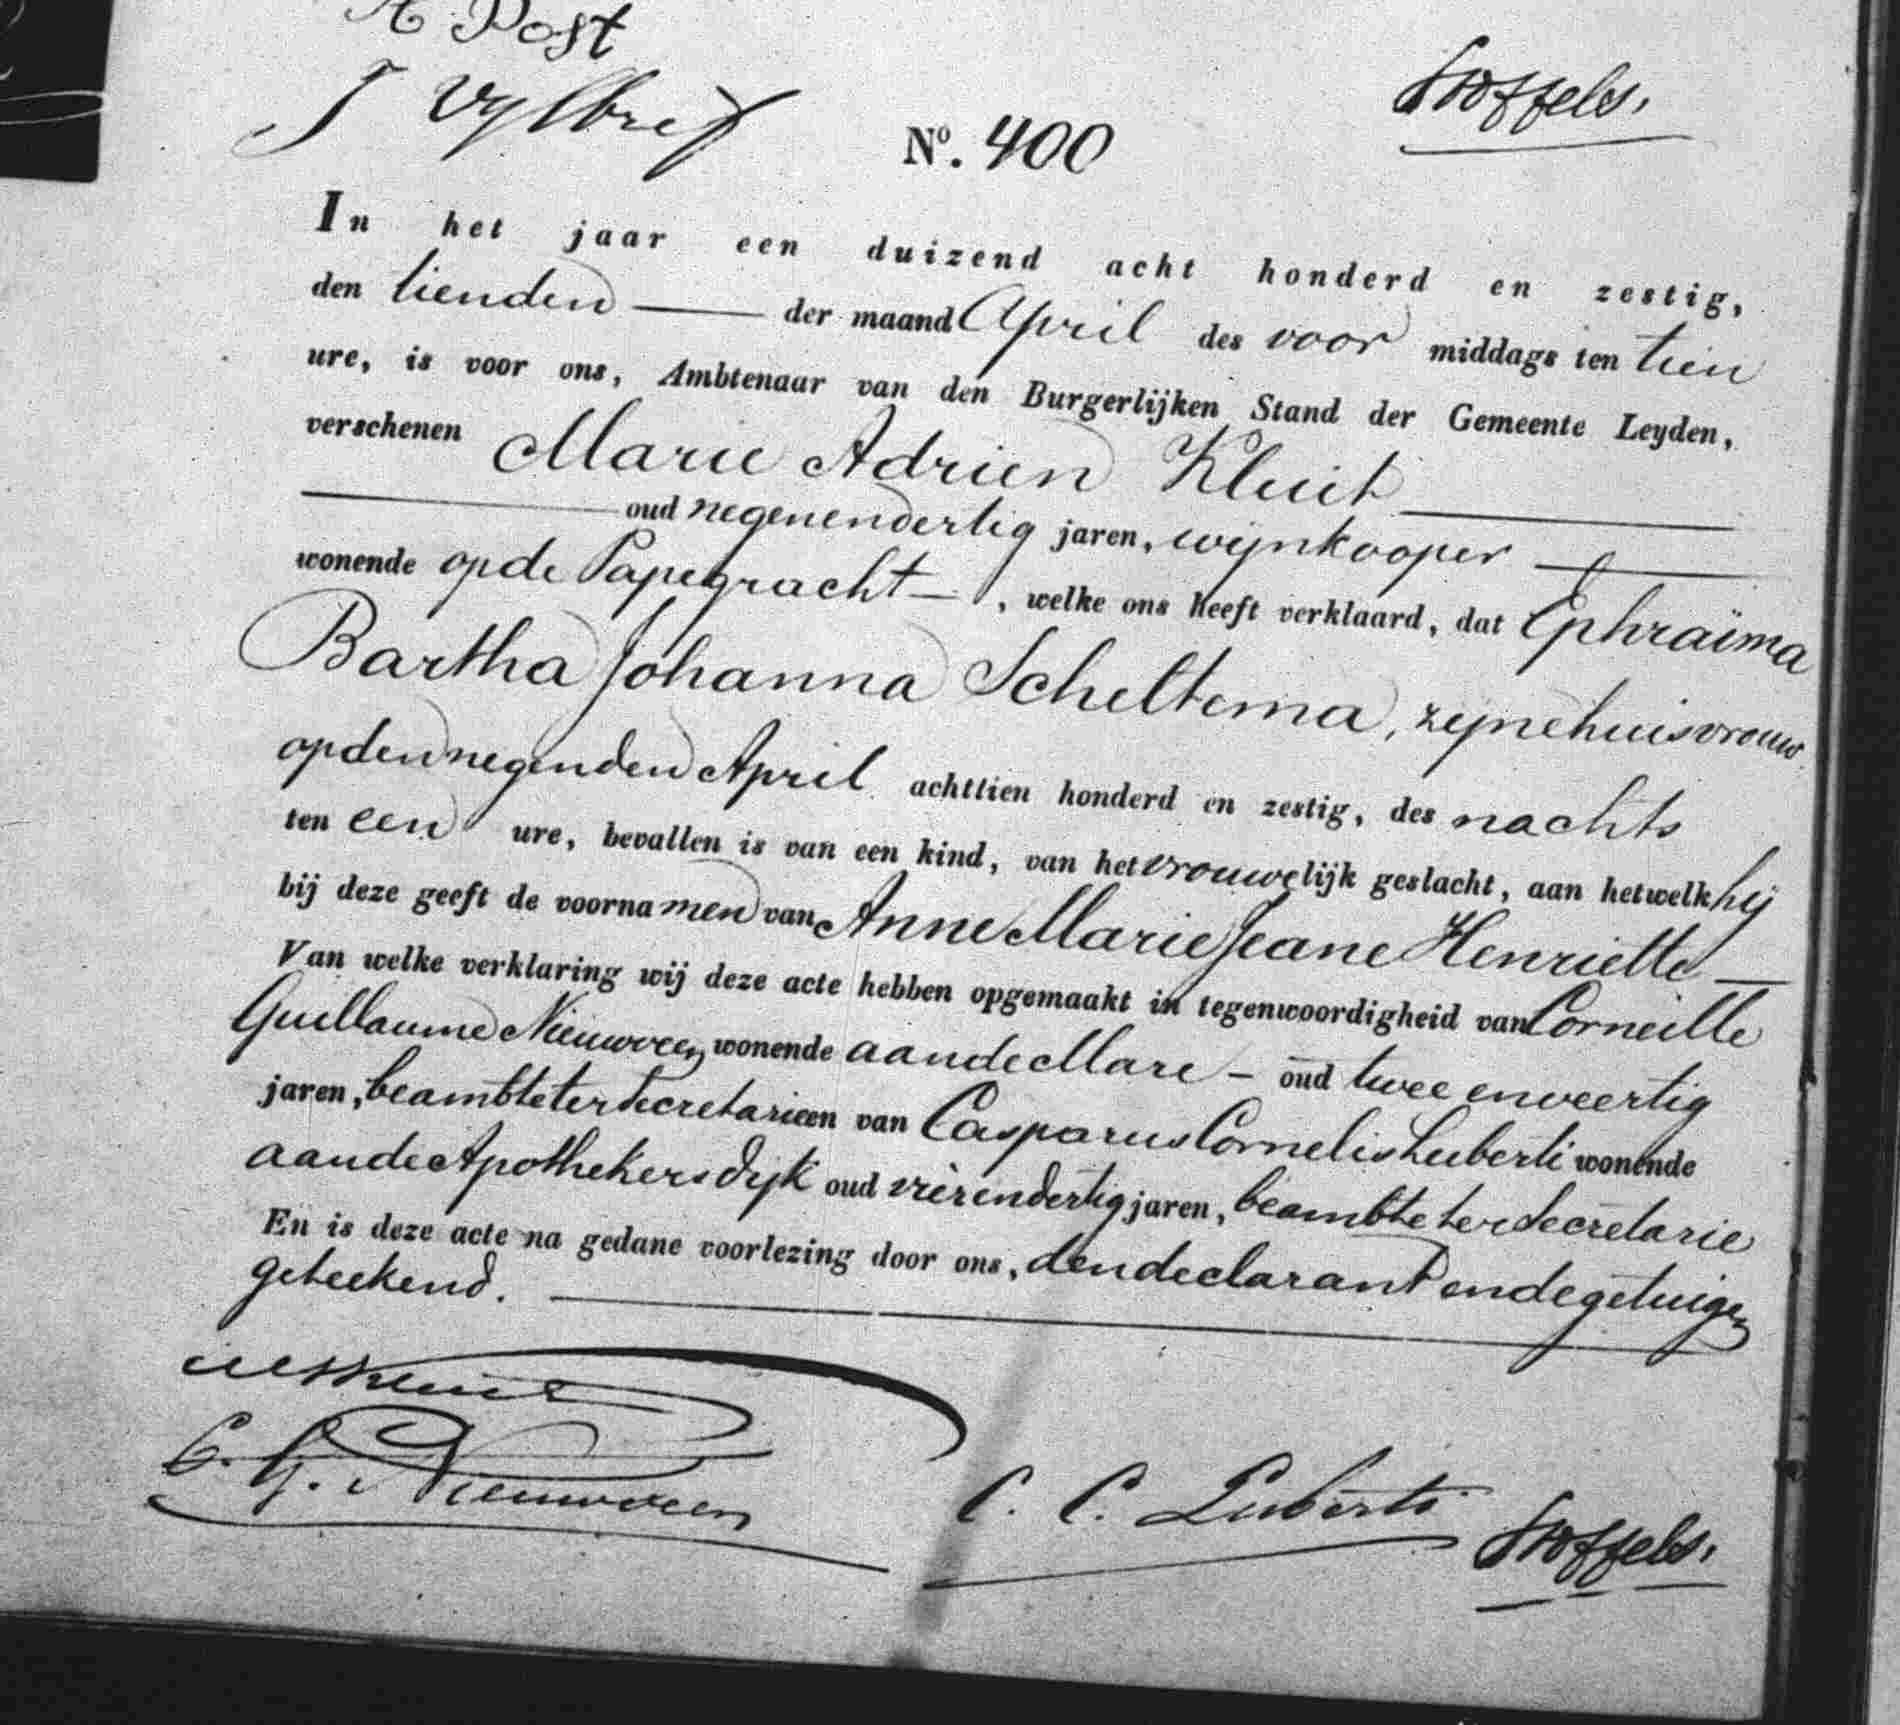 A Post
Stoffels.
J Vylbrief
No. 400
In het jaar een duizend acht honderd en zestig,
den tienden der maand April des voor middags ten tien
ure, is voor ons, Ambtenaar van den Burgerlijken Stand der Gemeente Leyden,
verschenen Marie Adrien Kluit
oud negenendertig jaren, wijnkooper
wonende op de Papegracht, welke ons heeft verklaard, dat Ephraïma
Bartha Johanna Scheltema, zijne huisvrouw
op den negenden April achttien honderd en zestig, des nachts
ten een ure, bevallen is van een kind, van het vrouwelijk geslacht, aan hetwelk hij
bij deze geeft de voornamen van Anne Marie Jeane Henriette
Van welke verklaring wij deze acte hebben opgemaakt in tegenwoordigheid van Corneille
Guillaume Nieuwveen wonende aan de Mare oud twee en veertig
jaren, beambte ter Secretarie en van Casparus Cornelis Luberti wonende
aan de Apothekersdijk oud vierendertig jaren, beambte ter Secretarie
En is deze acte na gedane voorlezing door ons, den declarant en de getuigen
geteekend.
C. G. Nieuwveen
C. C. Luberti
Stoffels.